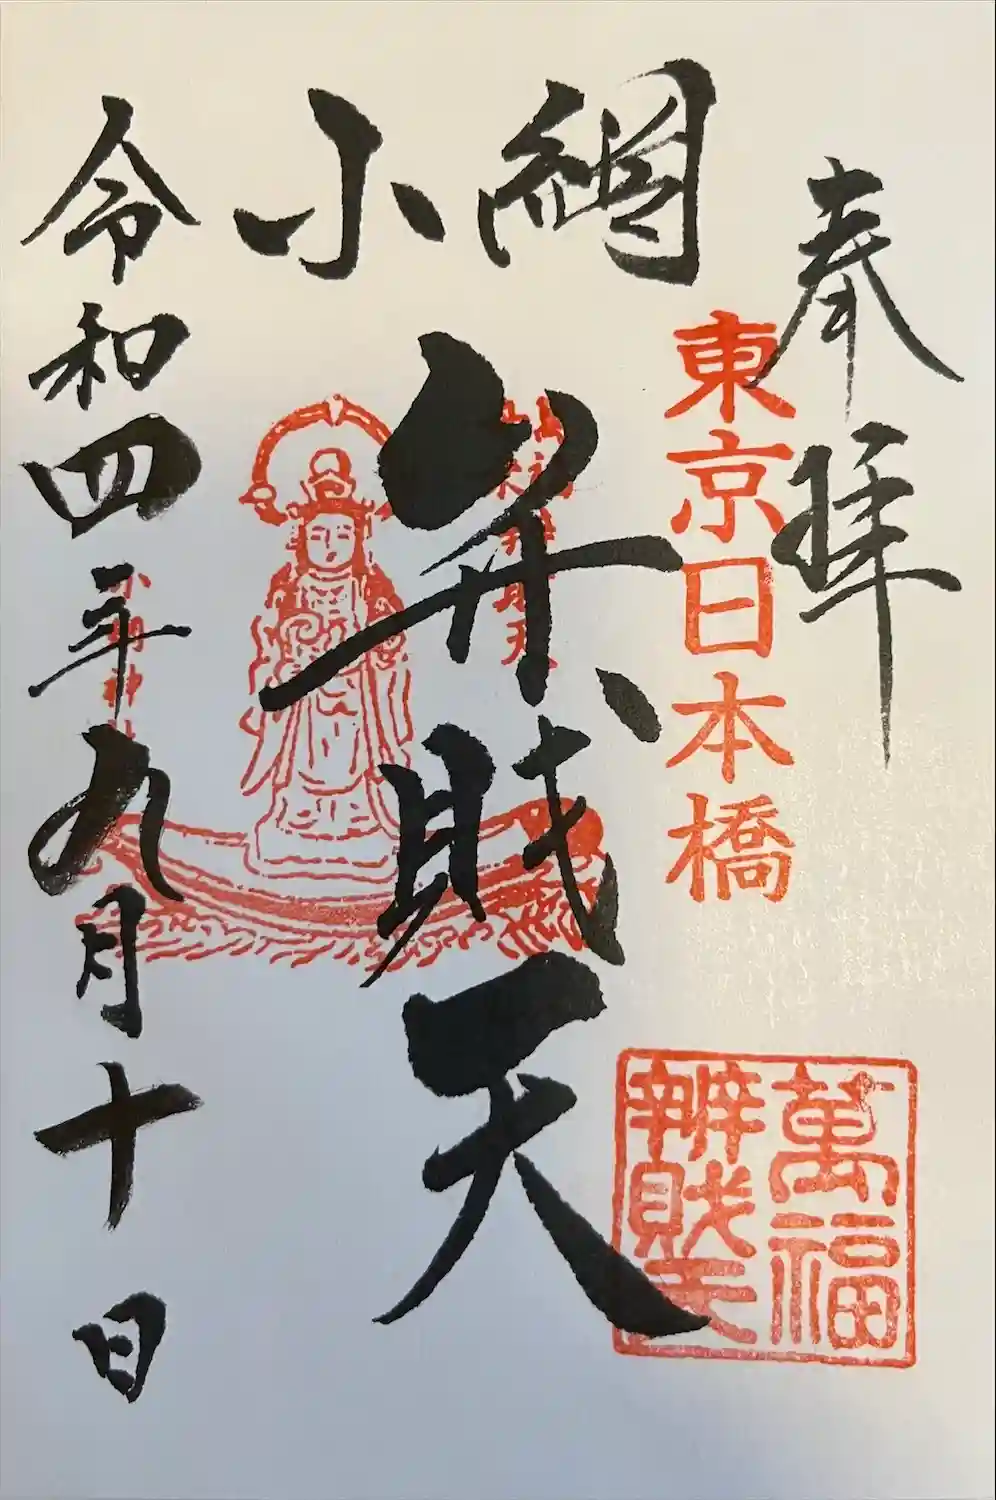 奉拝
東京日本橋
萬福
辨財天
小網
弁財天
小網神社
令和四年九月十日